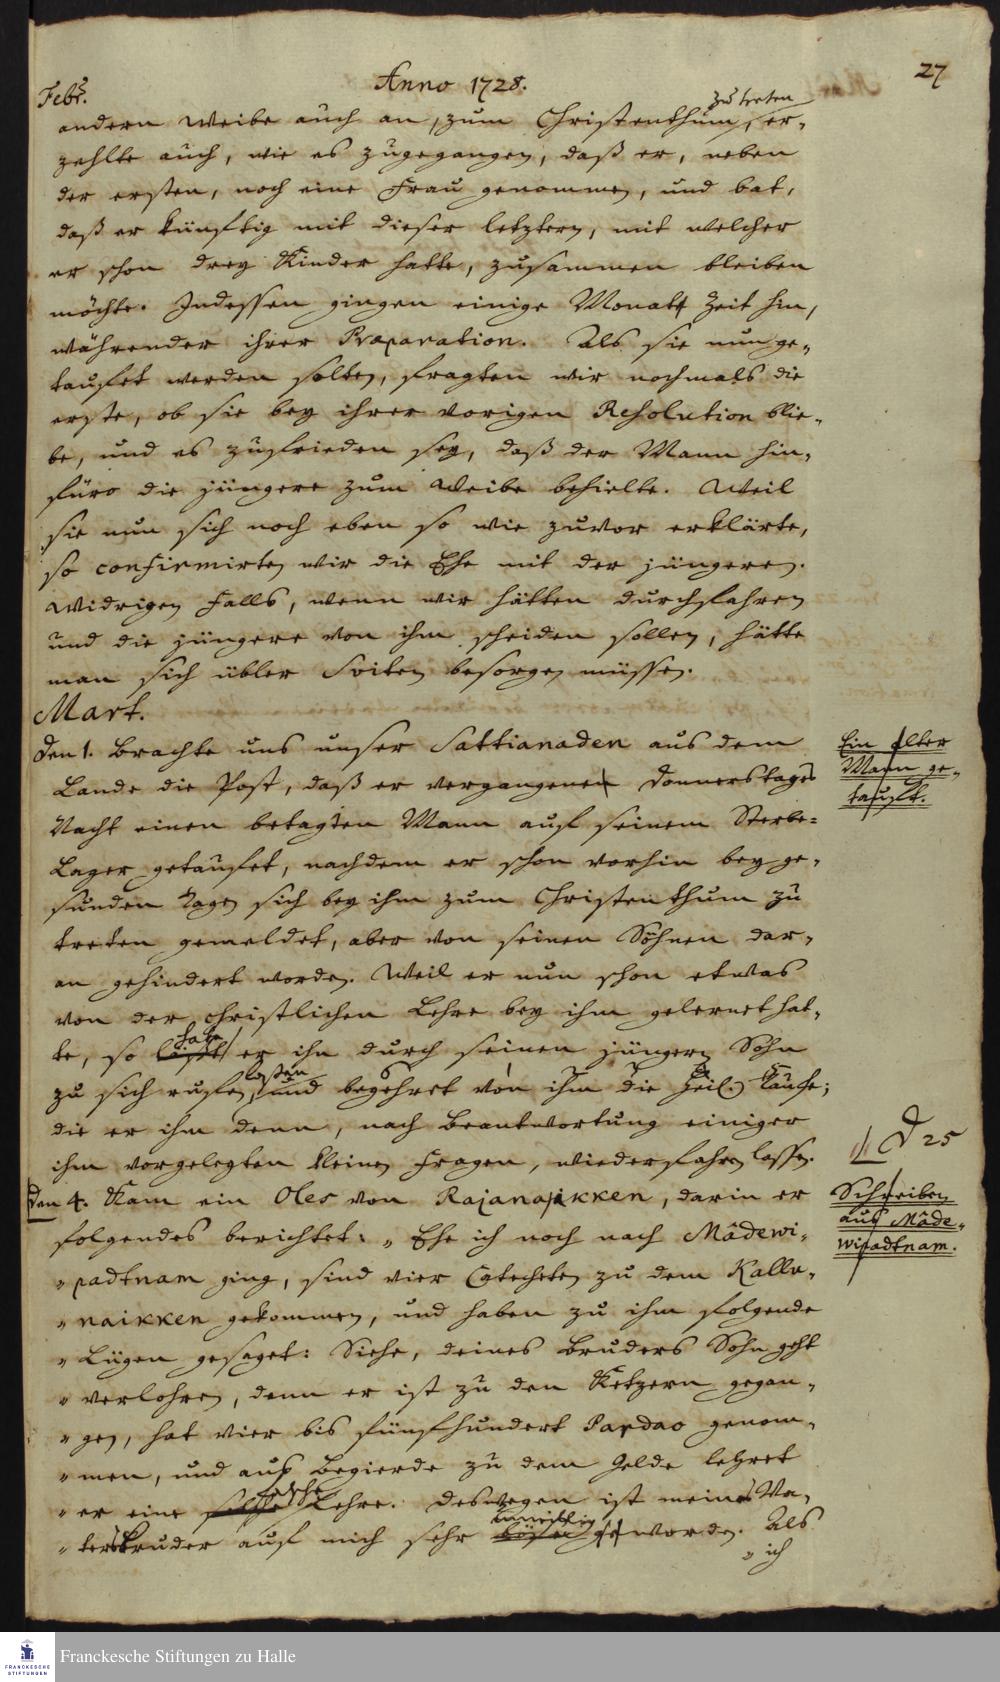 27
Anno 1728.
Febr.
zu treten
andern Weibe auch an, zum Christenthum, er-
zehlte auch, wie es zugegangen, daß er, neben
der ersten, noch eine Frau genommen, und bat,
daß er künftig mit dieser letztern, mit welcher
er schon drey Kinder hatte, zusammen bleiben
möchte. Indessen gingen einige Monath Zeit hin,
währender ihrer Præparation. Als sie nun ge-
tauffet werden solten, fragten wir nochmals die
erste, ob sie bey ihrer vorigen Resolution blie-
be, und es zufrieden sey, daß der Mann hin-
füro die jüngere zum Weibe behielte. Weil
sie nun sich noch eben so wie zuvor erklärte,
so confirmirten wir die Ehe mit der jüngeren.
Widrigen Falls, wenn wir hätten durchfahren
und die jüngere von ihm scheiden sollen, hätte
man sich übler Suiten besorgen müssen.
Mart.
Den 1. Brachte uns unser Sattianaden aus dem
Lande die Post, daß er vergangenen Donnerstages
Nacht einen betagten Mann auf seinem Sterbe-
Lager getauffet, nachdem er schon vorhin bey ge-
sunden Tagen sich bey ihm zum Christenthum zu
treten gemeldet, aber von seinen Söhnen dar-
an gehindert worden. Weil er nun schon etwas
von der christlichen Lehre bey ihm gelernet hat-
te, so habe er ihn durch seinen jüngern Sohn
zu sich rufen lassen, und begehret von ihm die Heil. Tauffe;
die er ihm denn, nach Beantwortung einiger
ihm vorgelegten kleinen Fragen, wiederfahren lassen.
Den 4. Kam ein Oles von Rajanaikken, darin er
folgendes berichtet: „Ehe ich noch nach Mâdewi-
„padtnam ging, sind vier Catecheten zu dem Kallu-
„naikken gekommen, und haben zu ihm folgende
„Lügen gesaget: Siehe, deines Bruders Sohn geht
„verlohren, denn er ist zu den Ketzern gegan-
„gen, hat vier bis fünfhundert Pardao genom-
„men, und aus Begierde zu dem Gelde lehret
„er eine falsche Lehre. Deswegen ist meines Va-
„ters Bruder auf mich sehr unwillig worden. Als
„ich
Ein alter
Mann ge-
tauft.
D 25
Schreiben
aus Mâde-
wipadtnam.
Franckesche Stiftungen zu Halle
FRANCKESCHE
STIFTUNGEN